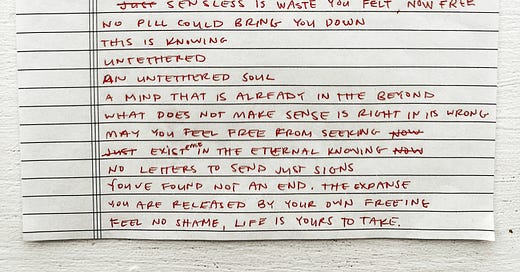 JUST SENSLESS IS WASTE YOU FELT, NOW FREE
NO PILL COULD BRING YOU DOWN
THIS IS KNOWING
UNTETHERED
AN UNTETHERED SOUL
A MIND THAT IS ALREADY IN THE BEYOND
WHAT DOES NOT MAKE SENSE IS RIGHT IN ITS WRONG
MAY YOU FEEL FREE FROM SEEKING NOW
JUST EXIST IN THE ETERNAL KNOWING NOW
NO LETTERS TO SEND JUST SIGNS
YOU'VE FOUND NOT AN END. THE EXPANSE
YOU ARE RELEASED BY YOUR OWN FREEING
FEEL NO SHAME, LIFE IS YOURS TO TAKE.